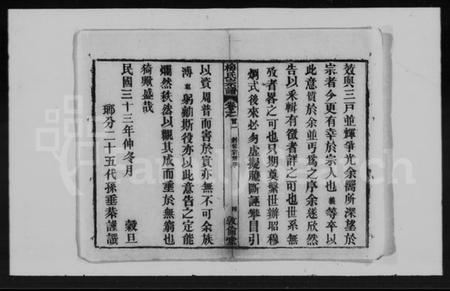 效與三戶並輝爭光余獨所深望於
宗者今更有幸於宗人也 等卒以
此意質於余並丐爲之序余遂欣然
告以釆輯有徵者詳之可也世系無
攷者畧之可也只期奠繫世辦昭穆
炳式後來必多虛擬臆斷誣攀目引
柳氏宗譜
卷之首
敦倫堂
以資 周普而害於實亦無不可余族
溥 東 躬勷斯役亦以此意告之定能
爛然秩然以觀其成而垂於無窮也
猗歟盛哉
民國三十三年仲冬月 穀旦
瑯分二十五代孫垂棻謹識